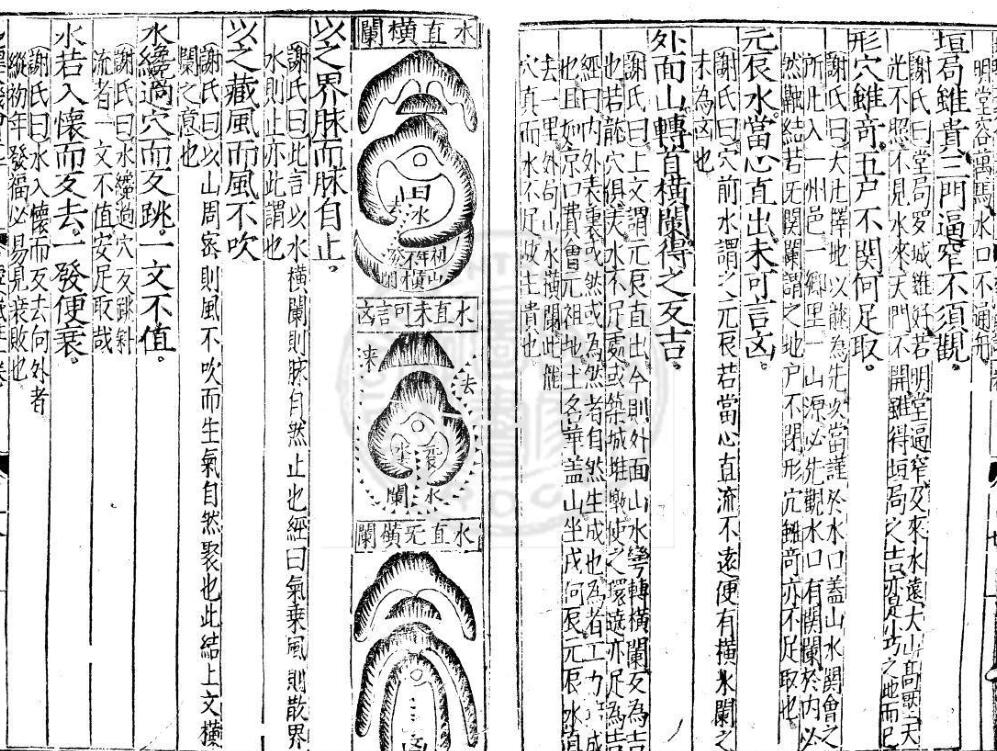 垣局雖貴三門逼窄不須觀。
謝氏曰堂局罗城雖好若明堂逼窄及來水遠大山高
光不照不見水來天門不開雖得垣局之吉亦
形穴雖竒五户不関何足取。
謝氏曰大凢擇地以
所凢入一州邑一鄉里一山源必先觀水口有関闌於内必
然融結若旡関闌謂之地户不閉形穴雖竒亦不足取也
元辰水當心直出未可言凶。
謝氏曰穴前水謂之元辰若當心直流不遠便有橫水闌之
未為凶也
外面山轉首橫闌得之反吉。
謝氏曰上文謂元辰直出今則外面山水彎轉橫闌反為吉
也若龍穴俱美水不足處或築城堆墩使之環遶亦足為吉
經曰内外表裏或然或為然者自然生成也為者工力
也且如京口費曾元祖地土名華盖山坐戌向辰元辰水直
去一里外有山水橫闌此龍
穴真而水不足故主貴也
水直橫闌
水直未可言凶
來
去
闌
水
水直旡橫闌
以之界脉而脉自止。
謝氏曰此言以水橫闌則脉自然止也經曰氣乗風則散界
水則止亦此謂也
以之藏風而風不吹
謝氏曰以山周宻則風不吹而生氣自然聚也此結上文橫
闌之意也
水纔過穴而反跳。一文不值。
謝氏曰水纔過穴反跳斜
流者一文不值安足取哉
水若入懷而反去。一發便衰。
謝氏曰水入懷而反去向外者
縱初年發福必易見衰敗也